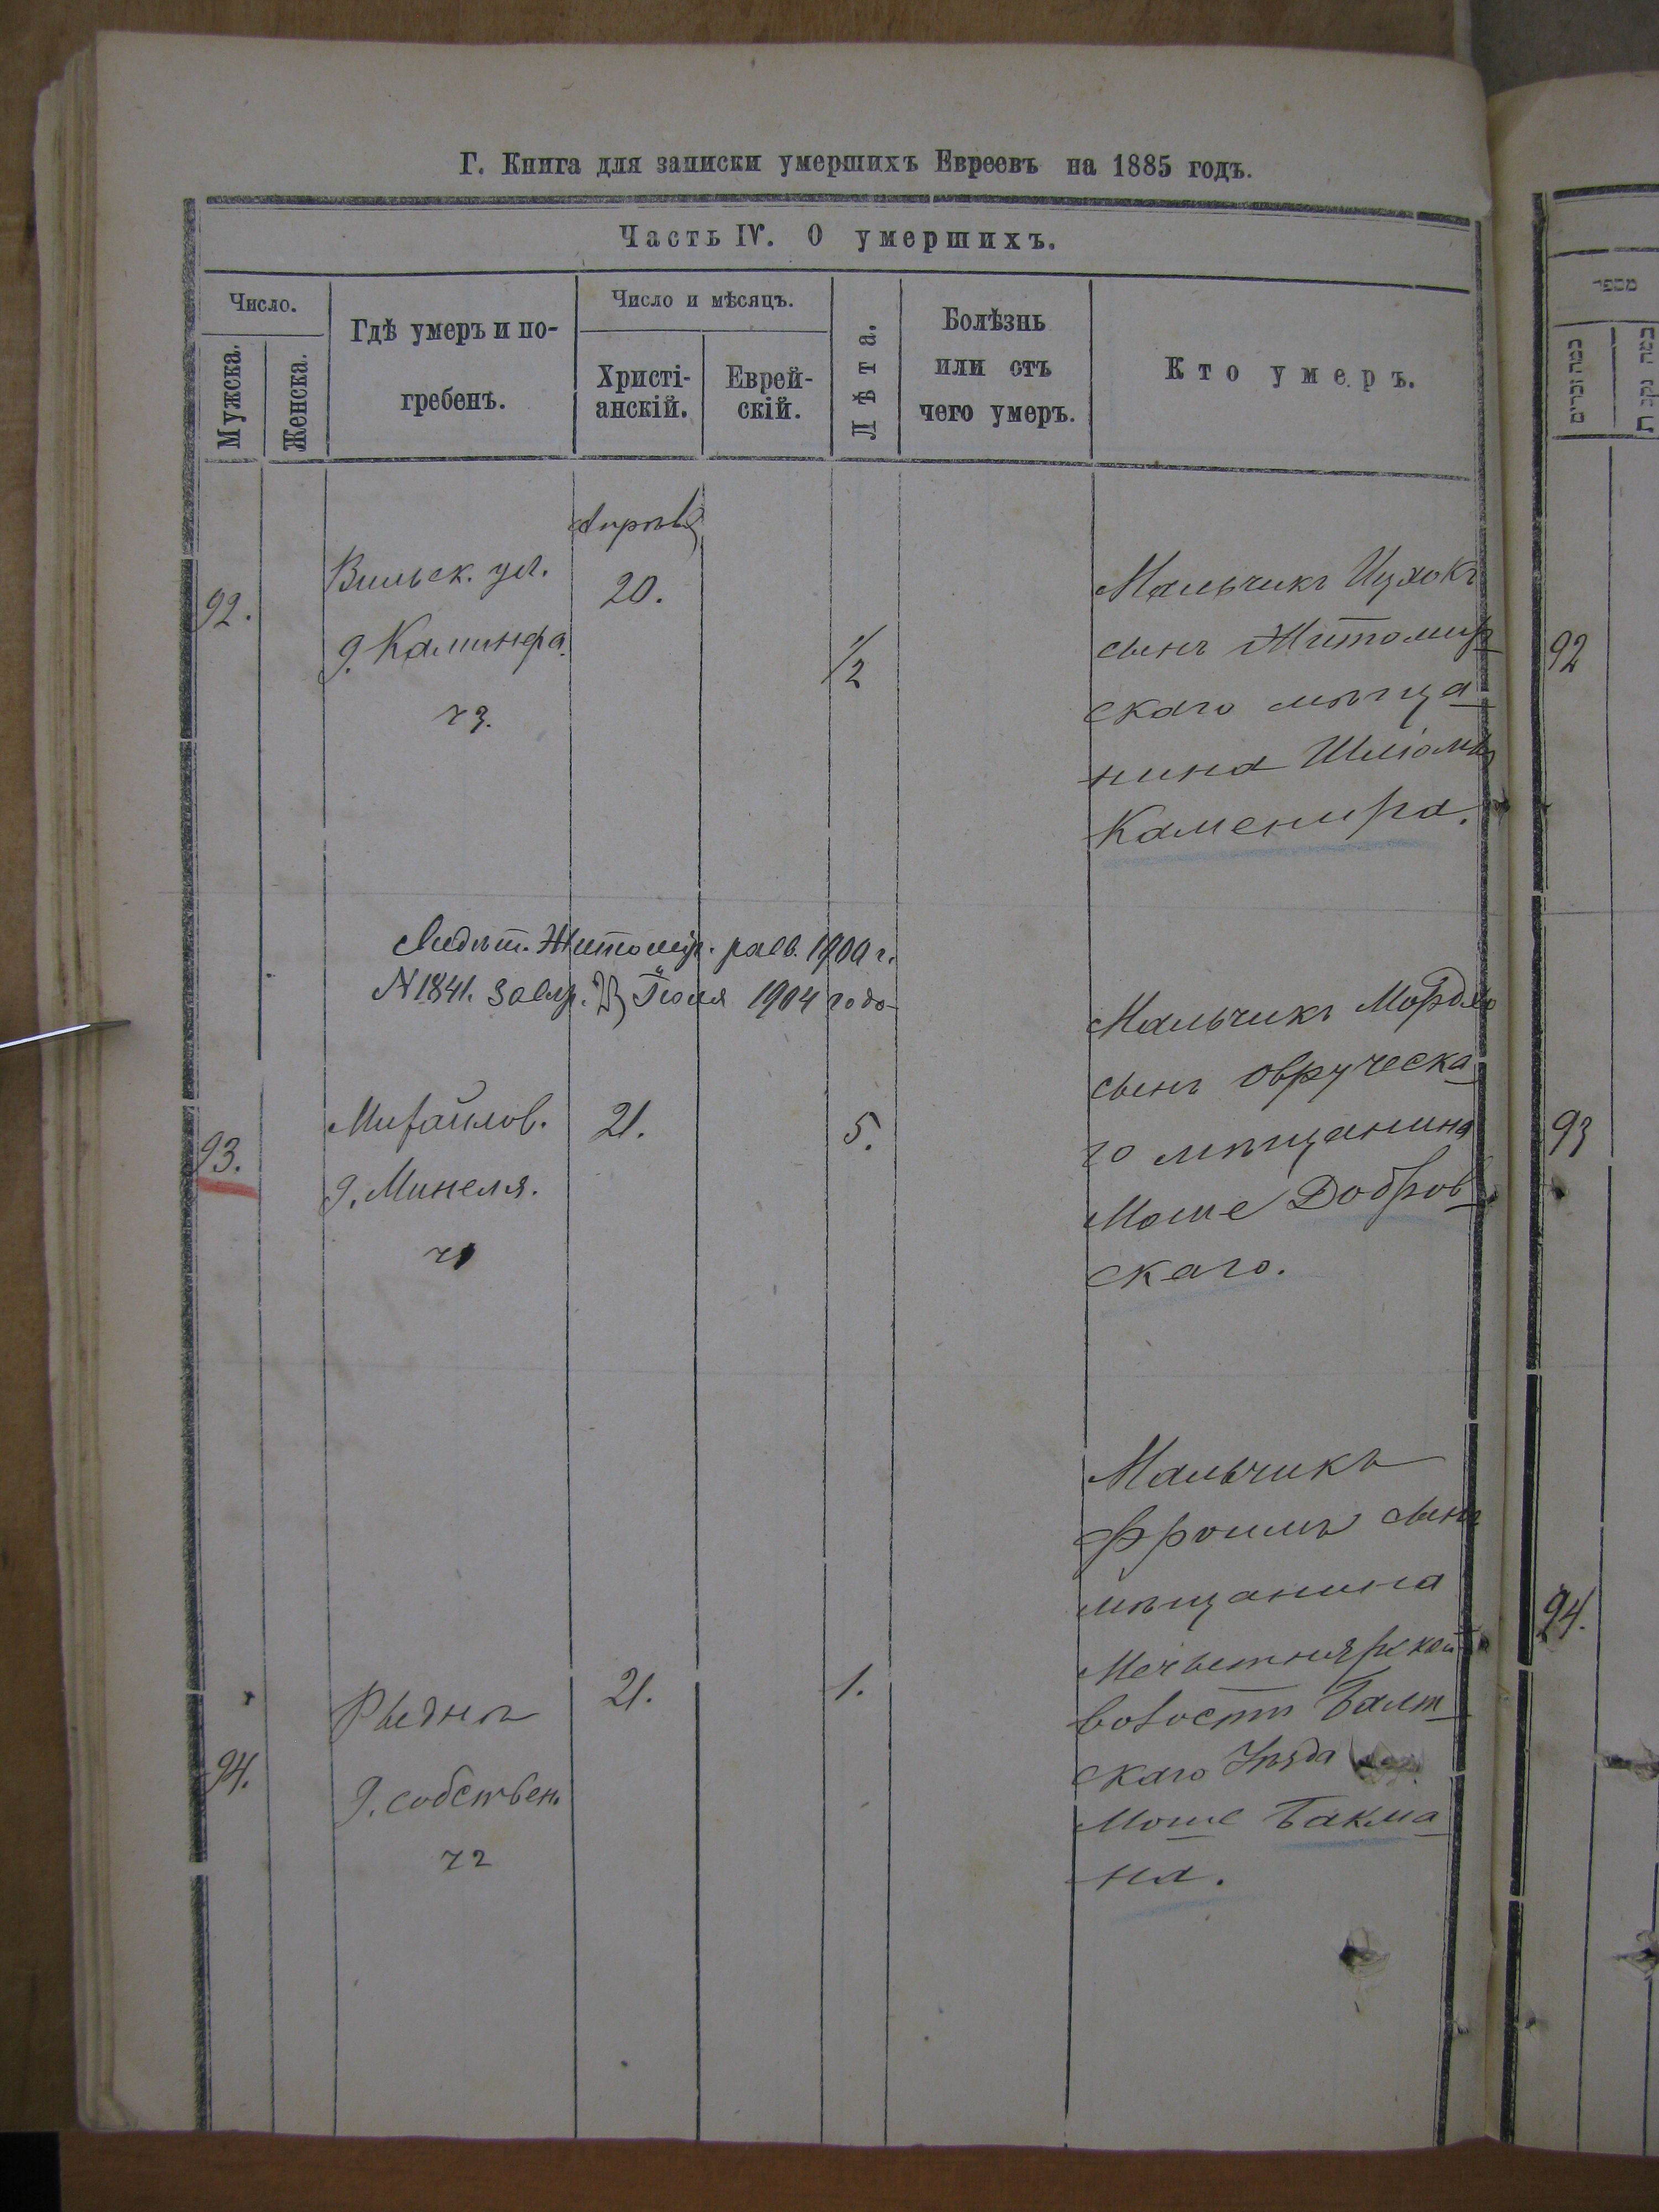 Г. Книга для записки умершихъ Евреевъ на 1885 годъ.
Часть IV. О умершихъ.
Число.
Мужска.
Женска.
Гдѣ умеръ и по-
гребенъ.
Число и мѣсяцъ.
Христі-
анскій.
Еврей-
скій.
Лѣта.
Болѣзнь
или отъ
чего умеръ.
Кто умеръ.
92.
Вильск. ул.
д. Каминера
ч 3.
Апрѣль
20.
1/2
Мальчикъ Ицхокъ
сынъ Житомир
скаго мѣща
нина Шліомы
Каменира.
Житомір. 1904 г.
N 1841. Іюля 1904 года
93.
Михайлов.
д. Минеля.
ч 1
21.
5.
Мальчикъ Мордхо
сынъ Овруческа
го мѣщанина
Моше Добров
скаго.
94.
д. собствен.
ч 2
21.
1.
Мальчикъ
Фроимъ сынъ
мѣщанина
волости Балт
скаго
Моше Бакма
на.
מספר
92
93
94.